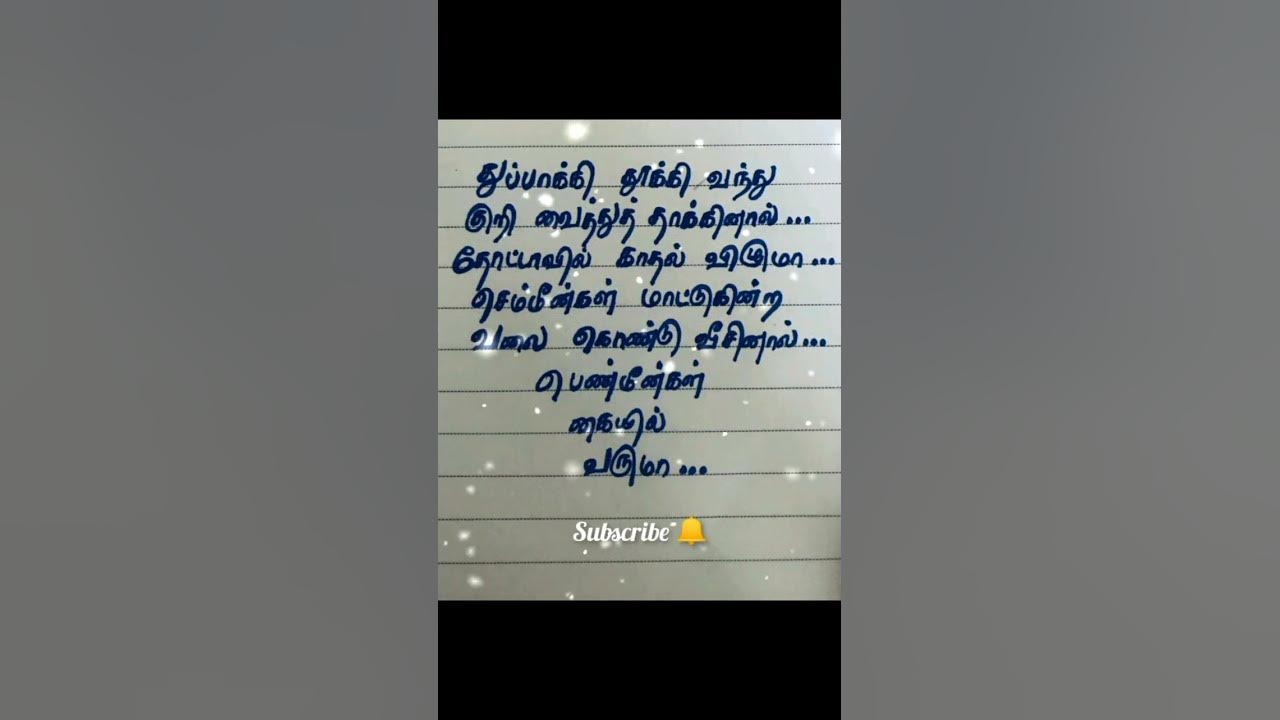 துப்பாக்கி தூக்கி வந்து
குறி வைத்துத் தாக்கினால்...
தோட்டாவில் காதல் விழுமா...
செம்மீன்கள் மாட்டுகின்ற
வலை கொண்டு வீசினால்...
பெண்மீன்கள்
கையில்
வருமா...
Subscribe